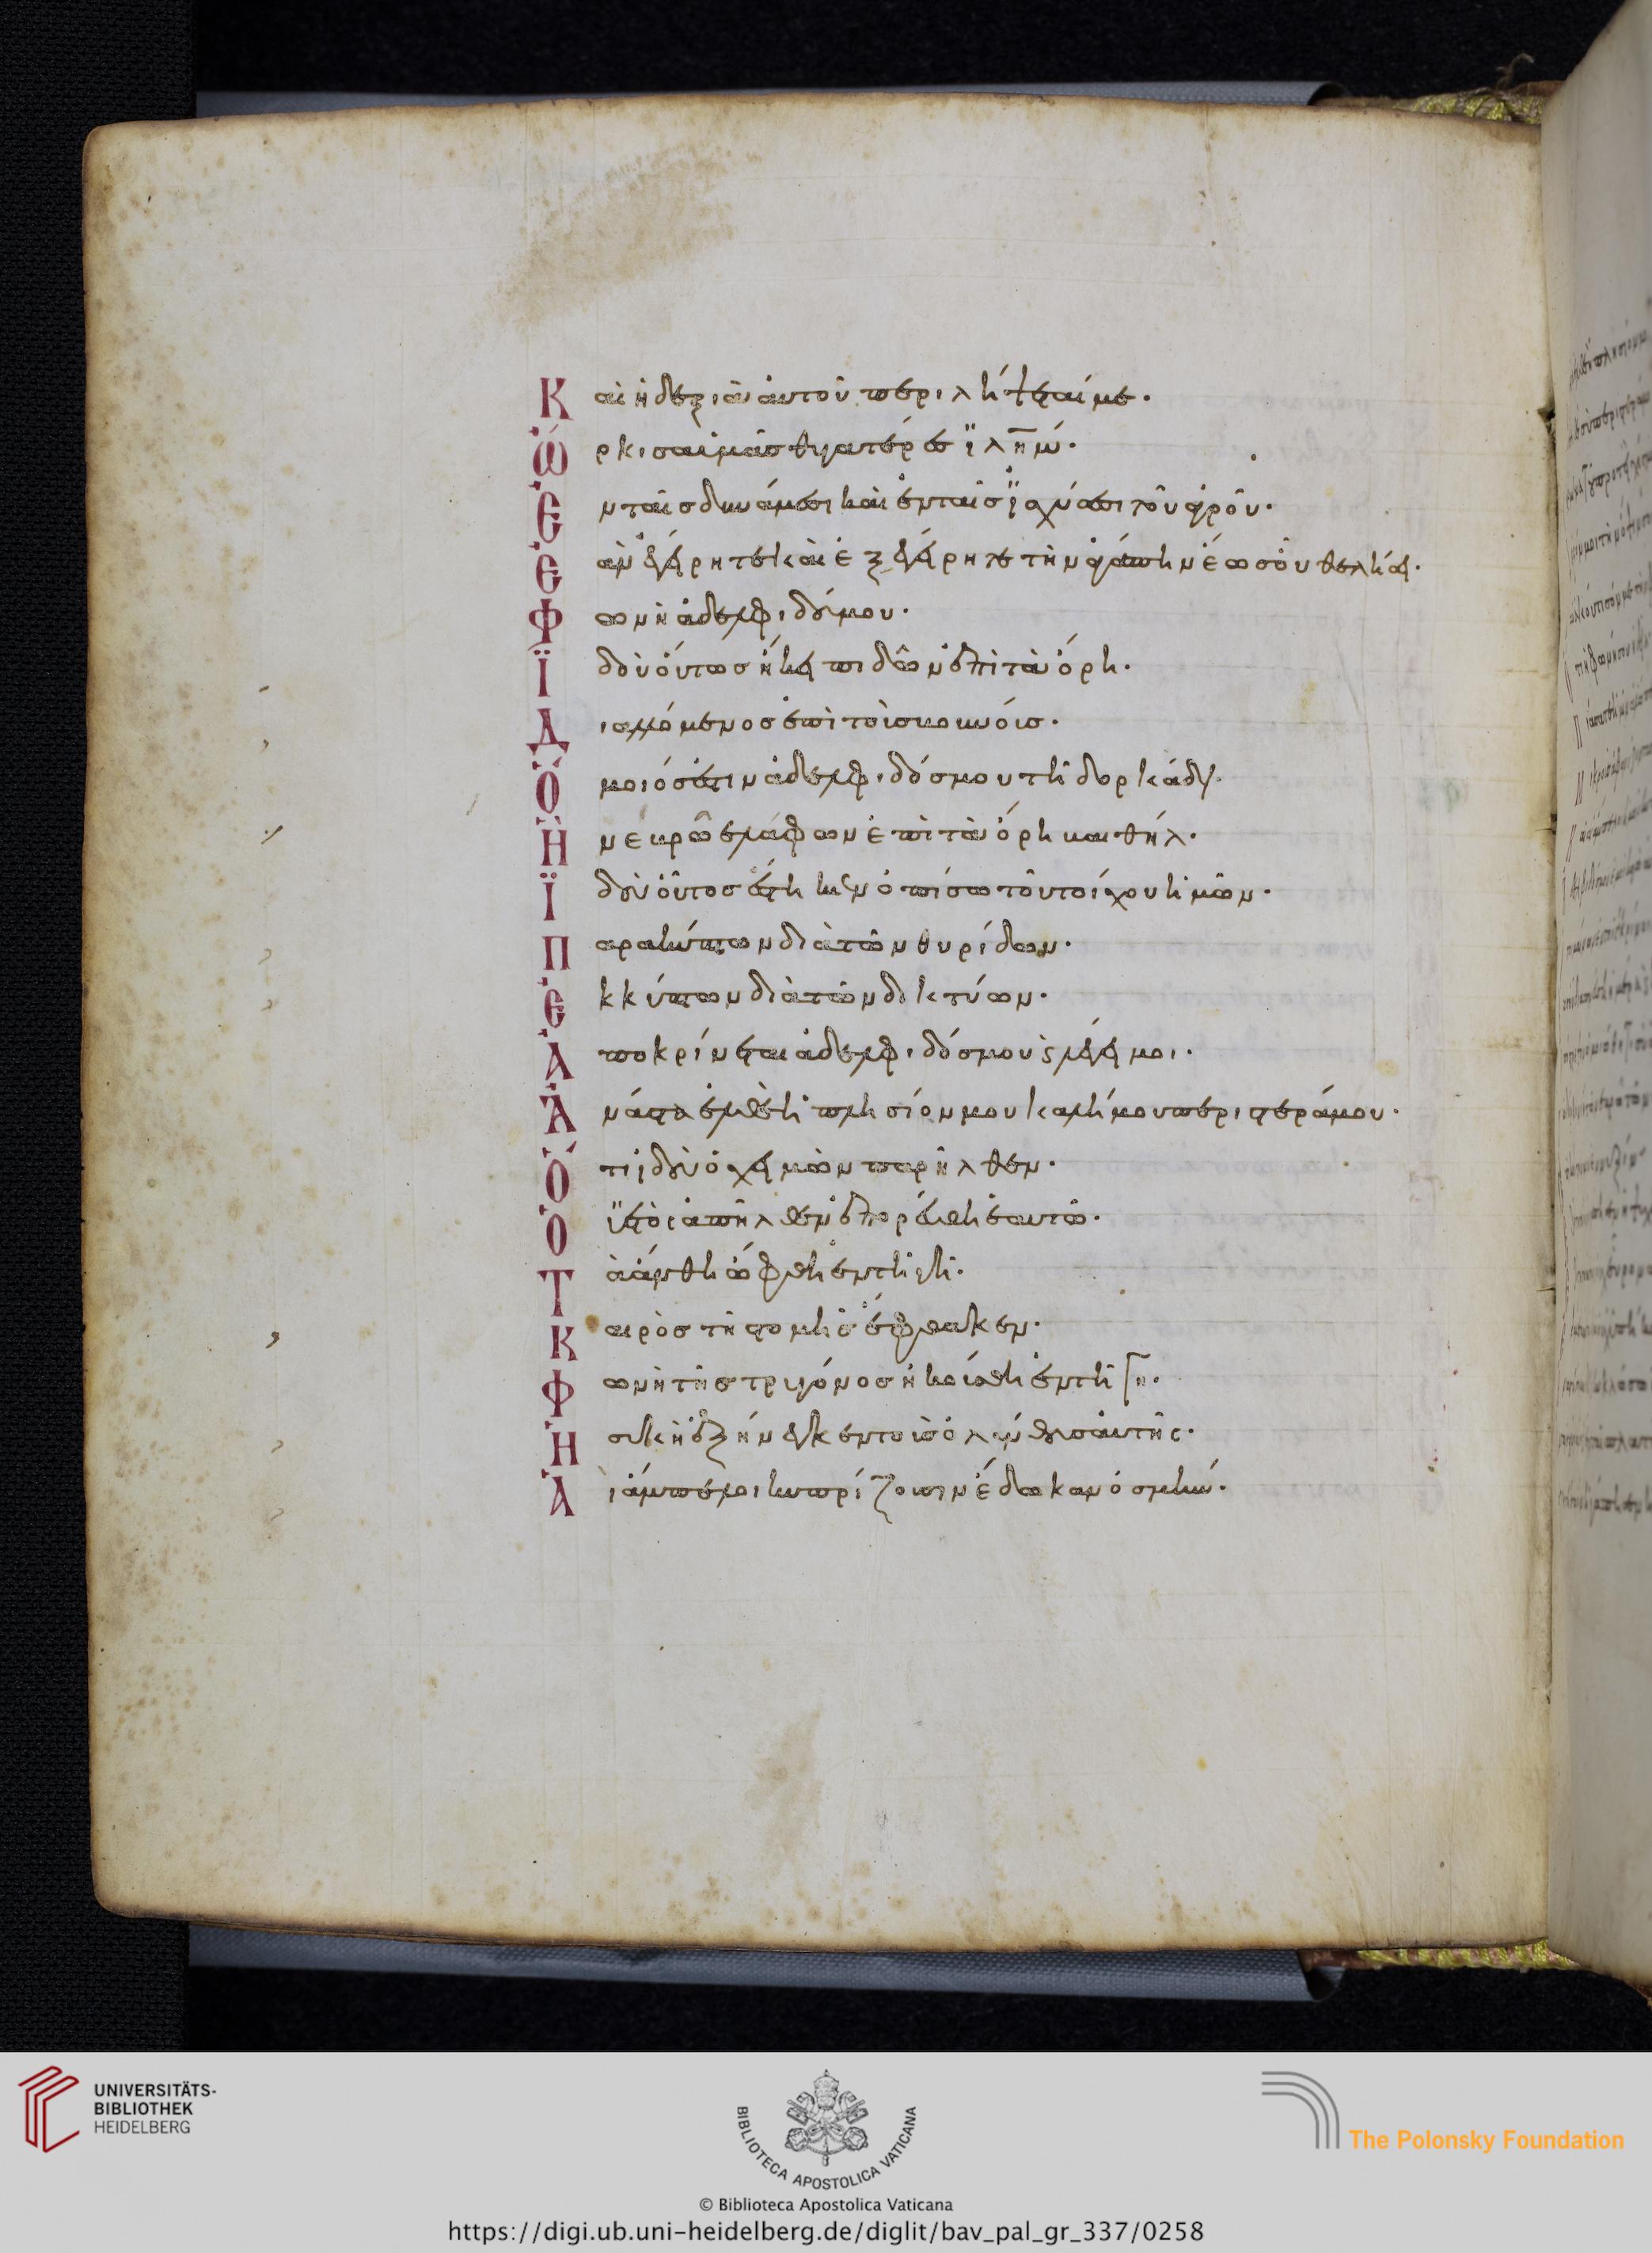 Καὶ ἡ δεξιὰ αὐτοῦ περιλήψεταί με·
Ὥρκισα ὑμᾶς θυγατέρες ϊλημ·
Ἐν ταῖς δυνάμεσι καὶ ἐν ταῖς ϊσχύσεσι τοῦ ἀγροῦ·
Ἐὰν ἐγείρητε καὶ ἐξεγείρητε τὴν ἀγάπην ἕως οὗ θελήσῃ·
Φωνὴ ἀδελφιδοῦ μου·
Ϊδοὺ οὗτος ἥκει πιδῶν ἐπὶ τὰ ὄρη·
Διαλλόμενος ἐπὶ τοὺς βουνούς·
Ὅμοιός ἐστιν ἀδελφιδός μου τῇ δορκάδι·
Ἢ νεβρῷ ἐλάφων ἐπὶ τὰ ὄρη βαιθήλ·
Ϊδοὺ οὗτος ἕστηκεν ὀπίσω τοῦ τοίχου ἡμῶν·
Παρακύπτων διὰ τῶν θυρίδων·
Ἐκκύπτων διὰ τῶν δικτύων·
Ἀποκρίνεται ἀδελφιδός μου κ λέγει μοι·
Ἀνάστα ἐλθὲ ἡ πλησίον μου καλή μου περιστερά μου·
Ὅτι ϊδοὺ ὁ χειμὼν παρῆλθεν·
Ὁ ϋετὸς ἀπῆλθεν ἐπορεύθη ἑαυτῷ·
Τὰ ἄνθη ὤφθη ἐν τῇ γῇ·
Καιρὸς τῆς τομῆς ἔφθακεν·
Φωνὴ τῆς τρυγόνος ἠκούσθη ἐν τῇ γῇ·
Ἡ συκῆ ἐξήνεγκεν τοὺς ὀλύνθους αὐτῆς·
Αἱ ἄμπελοι κυπρίζουσιν ἔδωκαν ὀσμήν·
UNIVERSITÄTS-
BIBLIOTHEK
HEIDELBERG
BIBLIOTECA APOSTOLICA VATICANA
The Polonsky Foundation
© Biblioteca Apostolica Vaticana
https://digi.ub.uni-heidelberg.de/diglit/bav_pal_gr_337/0258